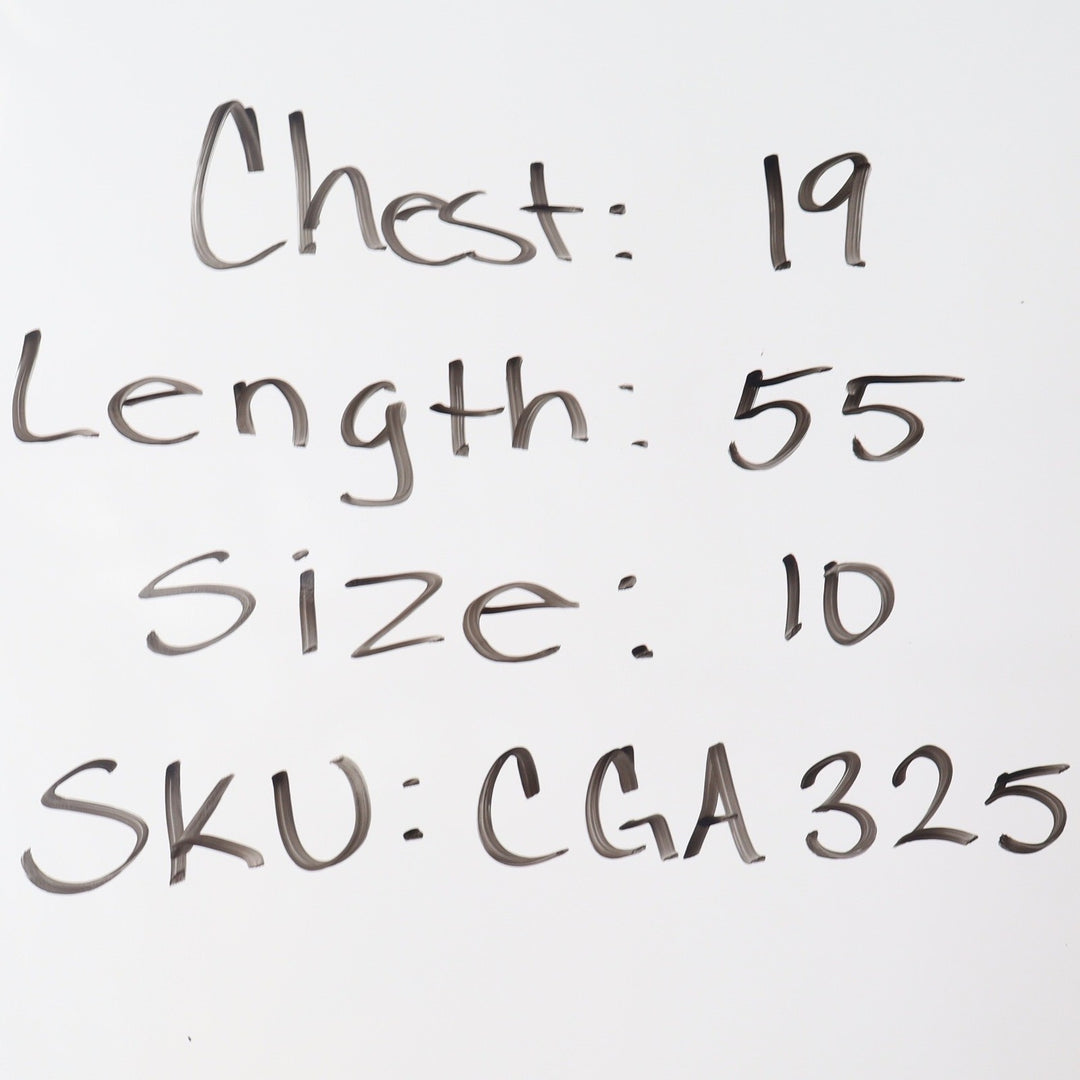 Chest: 19
Length: 55
Size: 10
SKU: CGA 325